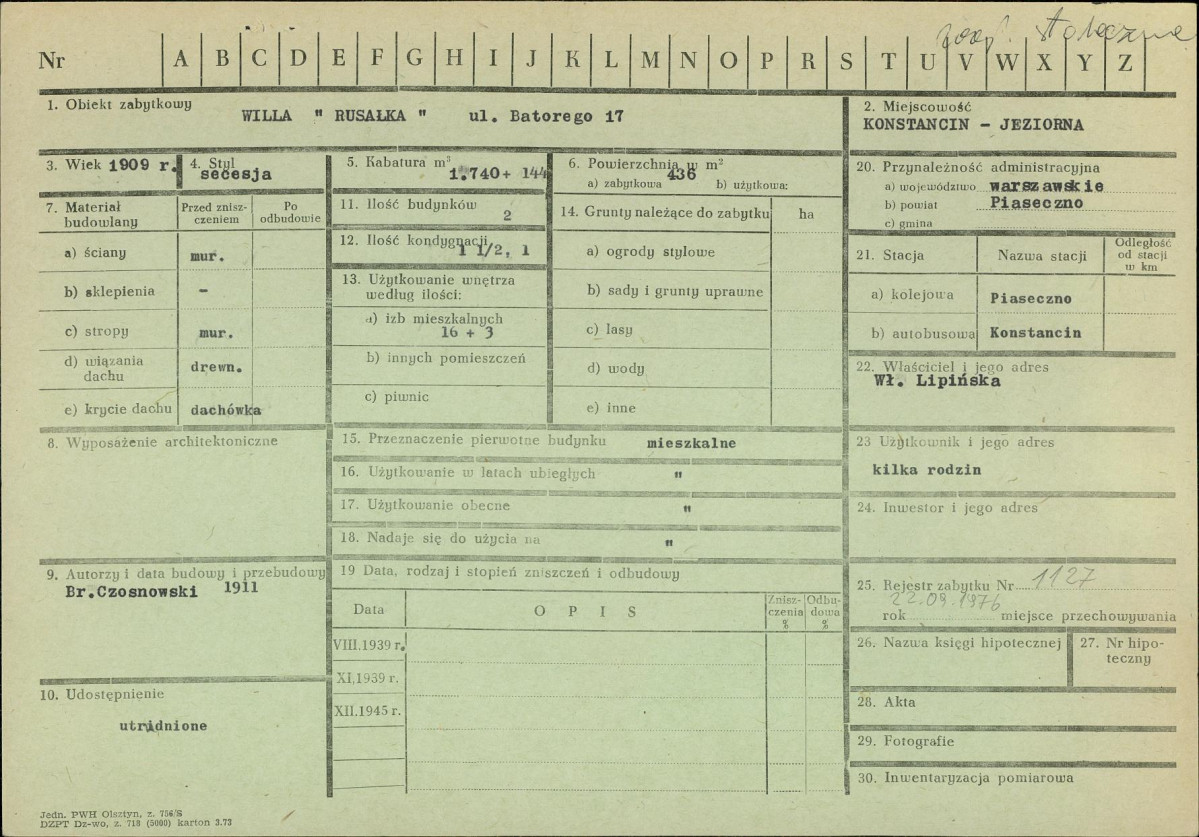 woj. stołeczne
Nr A B C D E F G H I J K L M N O P R S T U V W X Y Z
1. Obiekt zabytkowy
WILLA " RUSAŁKA " ul. Batorego 17
2. Miejscowość
KONSTANCIN - JEZIORNA
3. Wiek 1909 r.
4. Styl
secesja
5. Kabatura m³
1.740+ 144
6. Powierzchnia w m²
436
a) zabytkowa b) użytkowa:
7. Materiał budowlany
Przed znisz-
czeniem
Po
odbudowie
a) ściany mur.
b) sklepienia -
c) stropy mur.
d) wiązania
dachu drewn.
e) krycie dachu dachówka
8. Wyposażenie architektoniczne
9. Autorzy i data budowy i przebudowy
Br.Czosnowski 1911
10. Udostępnienie
utrudnione
11. Ilość budynków
2
12. Ilość kondygnacji
1 1/2, 1
13. Użytkowanie wnętrza
według ilości:
a) izb mieszkalnych
16 + 3
b) innych pomieszczeń
c) piwnic
14. Grunty należące do zabytku ha
a) ogrody stylowe
b) sady i grunty uprawne
c) lasy
d) wody
e) inne
15. Przeznaczenie pierwotne budynku mieszkalne
16. Użytkowanie w latach ubiegłych "
17. Użytkowanie obecne "
18. Nadaje się do użycia na "
19 Data, rodzaj i stopień zniszczeń i odbudowy
Data
O P I S
Znisz-
czenia
%
Odbu-
dowa
%
VIII.1939 r.
XI,1939 r.
XII.1945 r.
20. Przynależność administracyjna
a) województwo warszawskie
b) powiat Piaseczno
c) gmina
21. Stacja
Nazwa stacji
Odległość
od stacji
w km
a) kolejowa Piaseczno
b) autobusowa Konstancin
22. Właściciel i jego adres
Wł. Lipińska
23 Użytkownik i jego adres
kilka rodzin
24. Inwestor i jego adres
25. Rejestr zabytku Nr 1127
22.09.1976
rok miejsce przechowywania
26. Nazwa księgi hipotecznej
27. Nr hipo-
teczny
28. Akta
29. Fotografie
30. Inwentaryzacja pomiarowa
Jedn. PWH Olsztyn, z. 756/S
DZPT Dz-wo, z. 718 (5000) karton 3.73